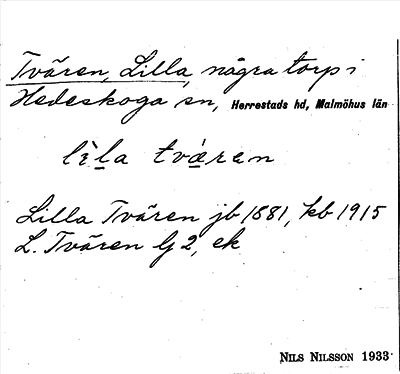 Tvären, Lilla, några torp i
Hedeskoga sn, Herrestads hd, Malmöhus län
lìla tvǽren
Lilla Tvären jb 1881, kb 1915
L. Tvären G 2, ek
NILS NILSSON 1933